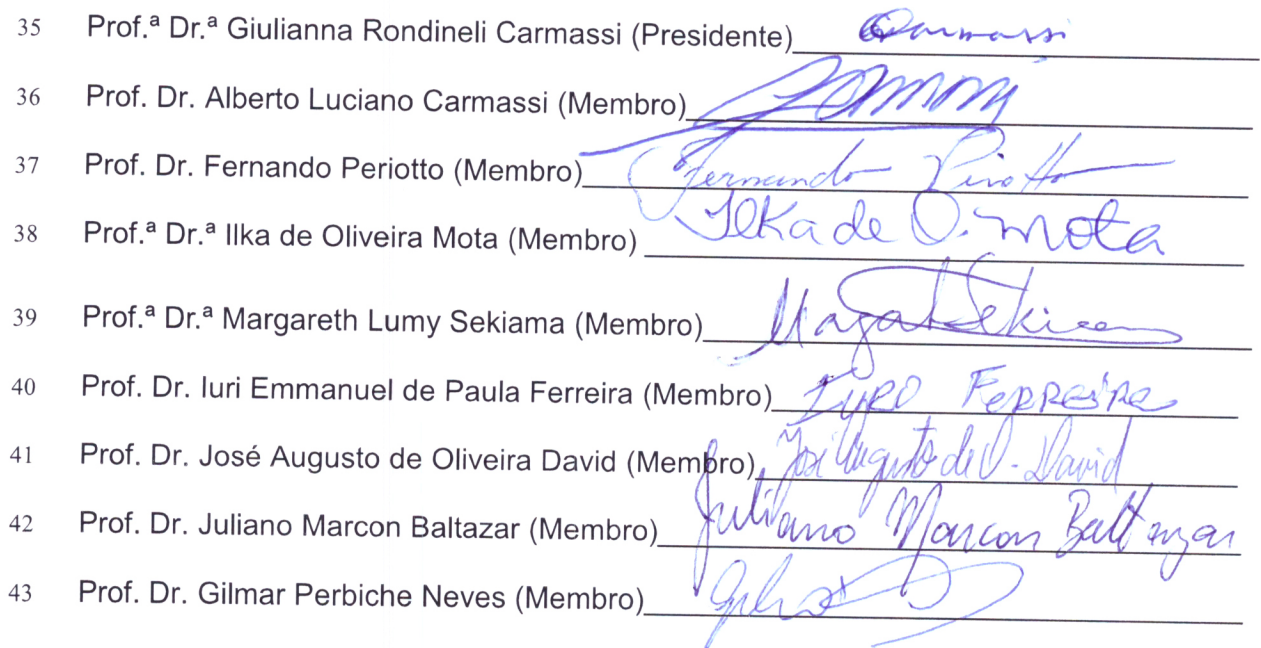 35 Prof.ª Dr.ª Giulianna Rondineli Carmassi (Presidente) Carmassi
36 Prof. Dr. Alberto Luciano Carmassi (Membro)
37 Prof. Dr. Fernando Periotto (Membro) Fernando Periotto
38 Prof.ª Dr.ª Ilka de Oliveira Mota (Membro) Ilka de O. Mota
39 Prof.ª Dr.ª Margareth Lumy Sekiama (Membro)
40 Prof. Dr. Iuri Emmanuel de Paula Ferreira (Membro) Ferreira
41 Prof. Dr. José Augusto de Oliveira David (Membro) José Augusto de O. David
42 Prof. Dr. Juliano Marcon Baltazar (Membro) Juliano Marcon Baltazar
43 Prof. Dr. Gilmar Perbiche Neves (Membro)